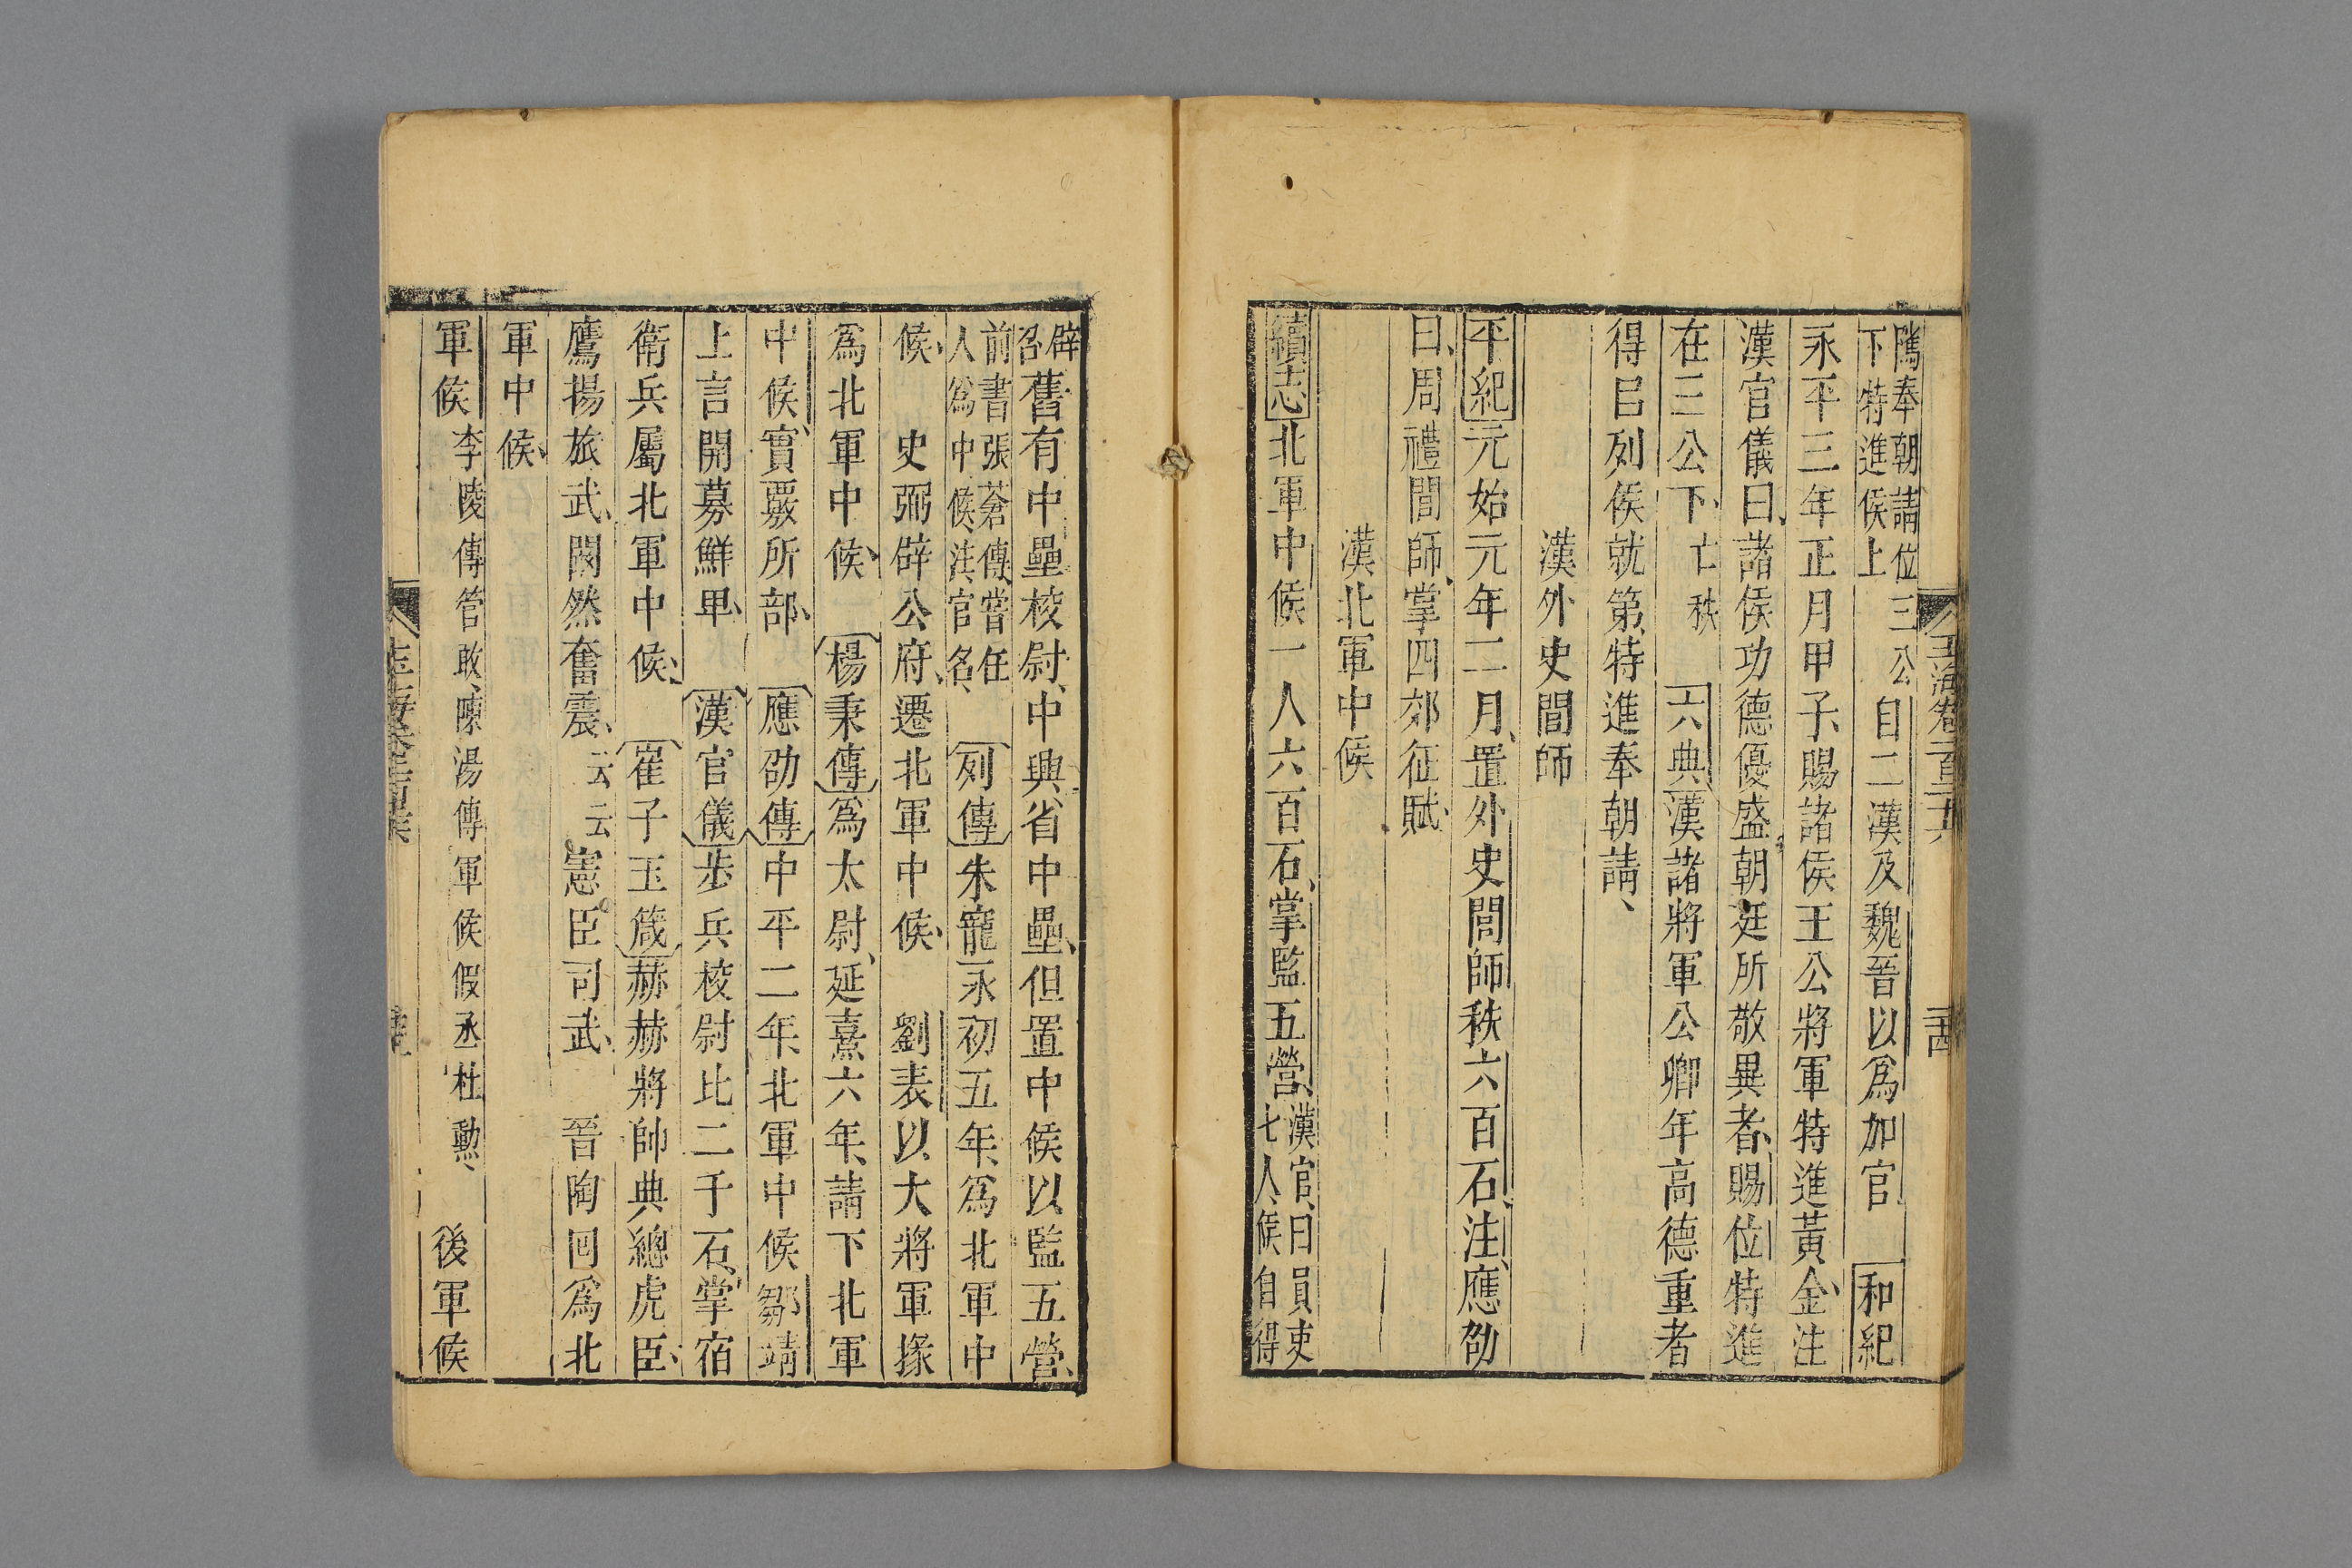 玉海卷一百三十五
隲奉朝請位
下特進侯上
三公自二漢及魏晉以爲加官 和紀
永平三年正月甲子賜諸侯王公將軍特進黃金注
漢官儀曰諸侯功德優盛朝廷所敬異者賜位特進
在三公下亡秩 六典漢諸將軍公卿年高德重者
得以列侯就第特進奉朝請
漢外史閭師
平紀元始元年二月置外史閭師秩六百石注應劭
曰周禮閭師掌四郊征賦
漢北軍中候
續志北軍中候一人六百石掌監五營
漢官曰員吏
七人候自得
辟
召
舊有中壘校尉中興省中壘但置中候以監五營
前書張蒼傳嘗任
人爲中候注官名
列傳朱寵永初五年爲北軍中
候 史弼辟公府遷北軍中候 劉表以大將軍掾
爲北軍中候 楊秉傳爲太尉延熹六年請下北軍
中候實覈所部 應劭傳中平二年北軍中候鄒靖
上言開募鮮卑 漢官儀步兵校尉比二千石掌宿
衛兵屬北軍中候 崔子玉箴赫赫將帥典總虎臣
鷹揚旅武闞然奮震云云憲臣司武 晉陶回爲北
軍中候
軍候李陵傳管敢陳湯傳軍候假丞杜勳 後軍候